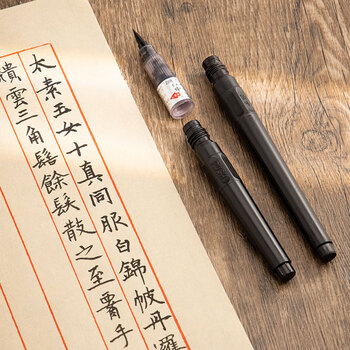 太素玉女十真同服白錦帔丹羅
積雲三角髻餘髮散之至臂手